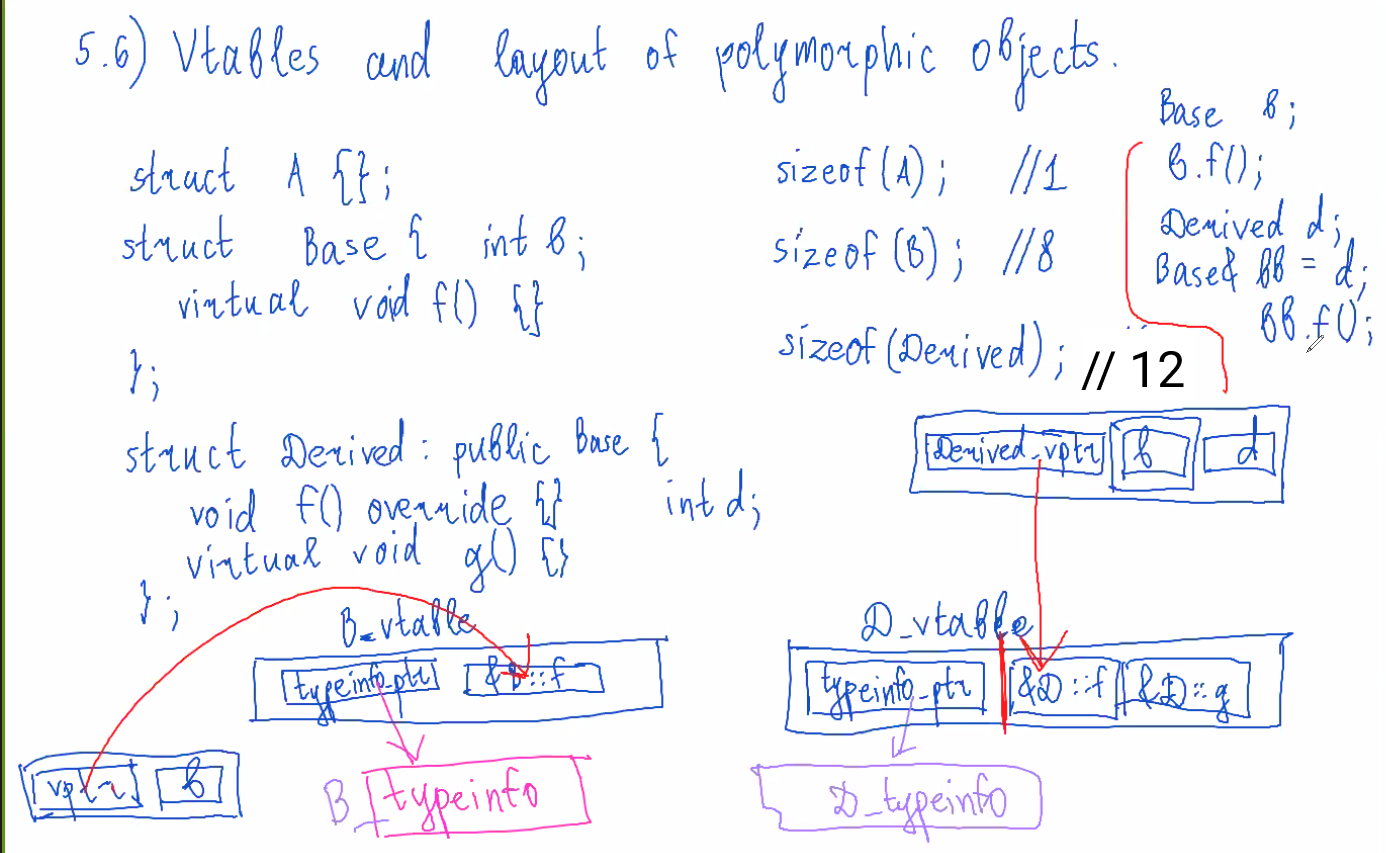 5.6) Vtables and layout of polymorphic objects.
struct A {};
struct Base { int b;
virtual void f() {}
};
struct Derived : public Base {
void f() override {} int d;
virtual void g() {}
};
sizeof(A); //1
sizeof(B); //8
sizeof(Derived); // 12
Base b;
b.f();
Derived d;
Base& bb = d;
bb.f();
Derived_vptr b d
B_vtable
typeinfo_ptr &B::f
D_vtable
typeinfo_ptr &D::f &D::g
vptr b
B_typeinfo
D_typeinfo